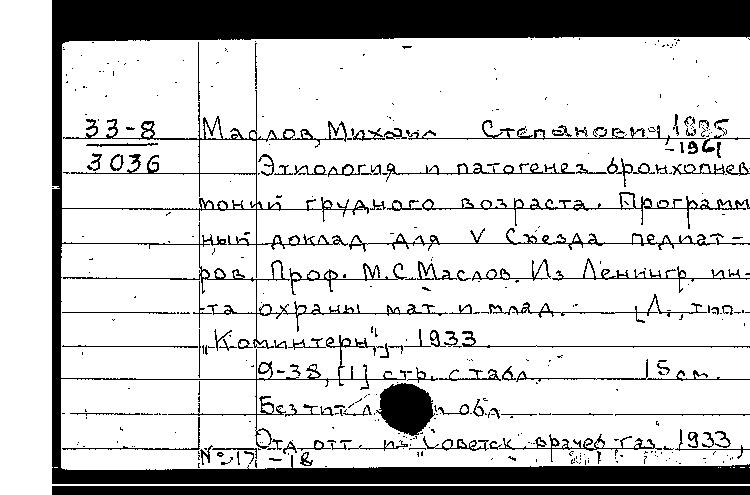 33-8
3036
Маслов, Михаил Степанович, 1885
-1961
Этиология и патогенез бронхопнев
моний грудного возраста. Программ
ный доклад для V Съезда педиат=
ров. Проф. М.С.Маслов. Из Ленингр. ин-
-та охраны мат. и млад. - [Л., тип.
„Коминтерн"], 1933.
9-38, [1] стр. с табл. 15 см.
Без тит. и обл.
Отд. отт. из „Советск. врачеб газ. 1933,
№ 17 - 18